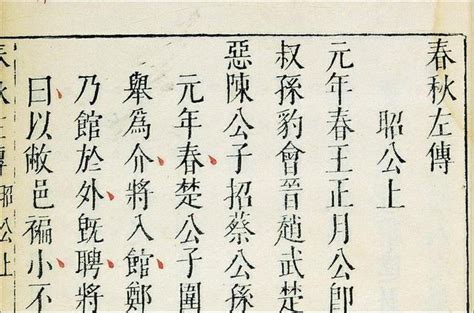 春秋左傳
昭公上
元年春王正月公卽
叔孫豹會晉趙武楚
惡陳公子招蔡公孫
元年春楚公子圍
舉爲介將入館鄭
乃館於外旣聘將
曰以敝邑褊小不
春秋左傳 昭公上